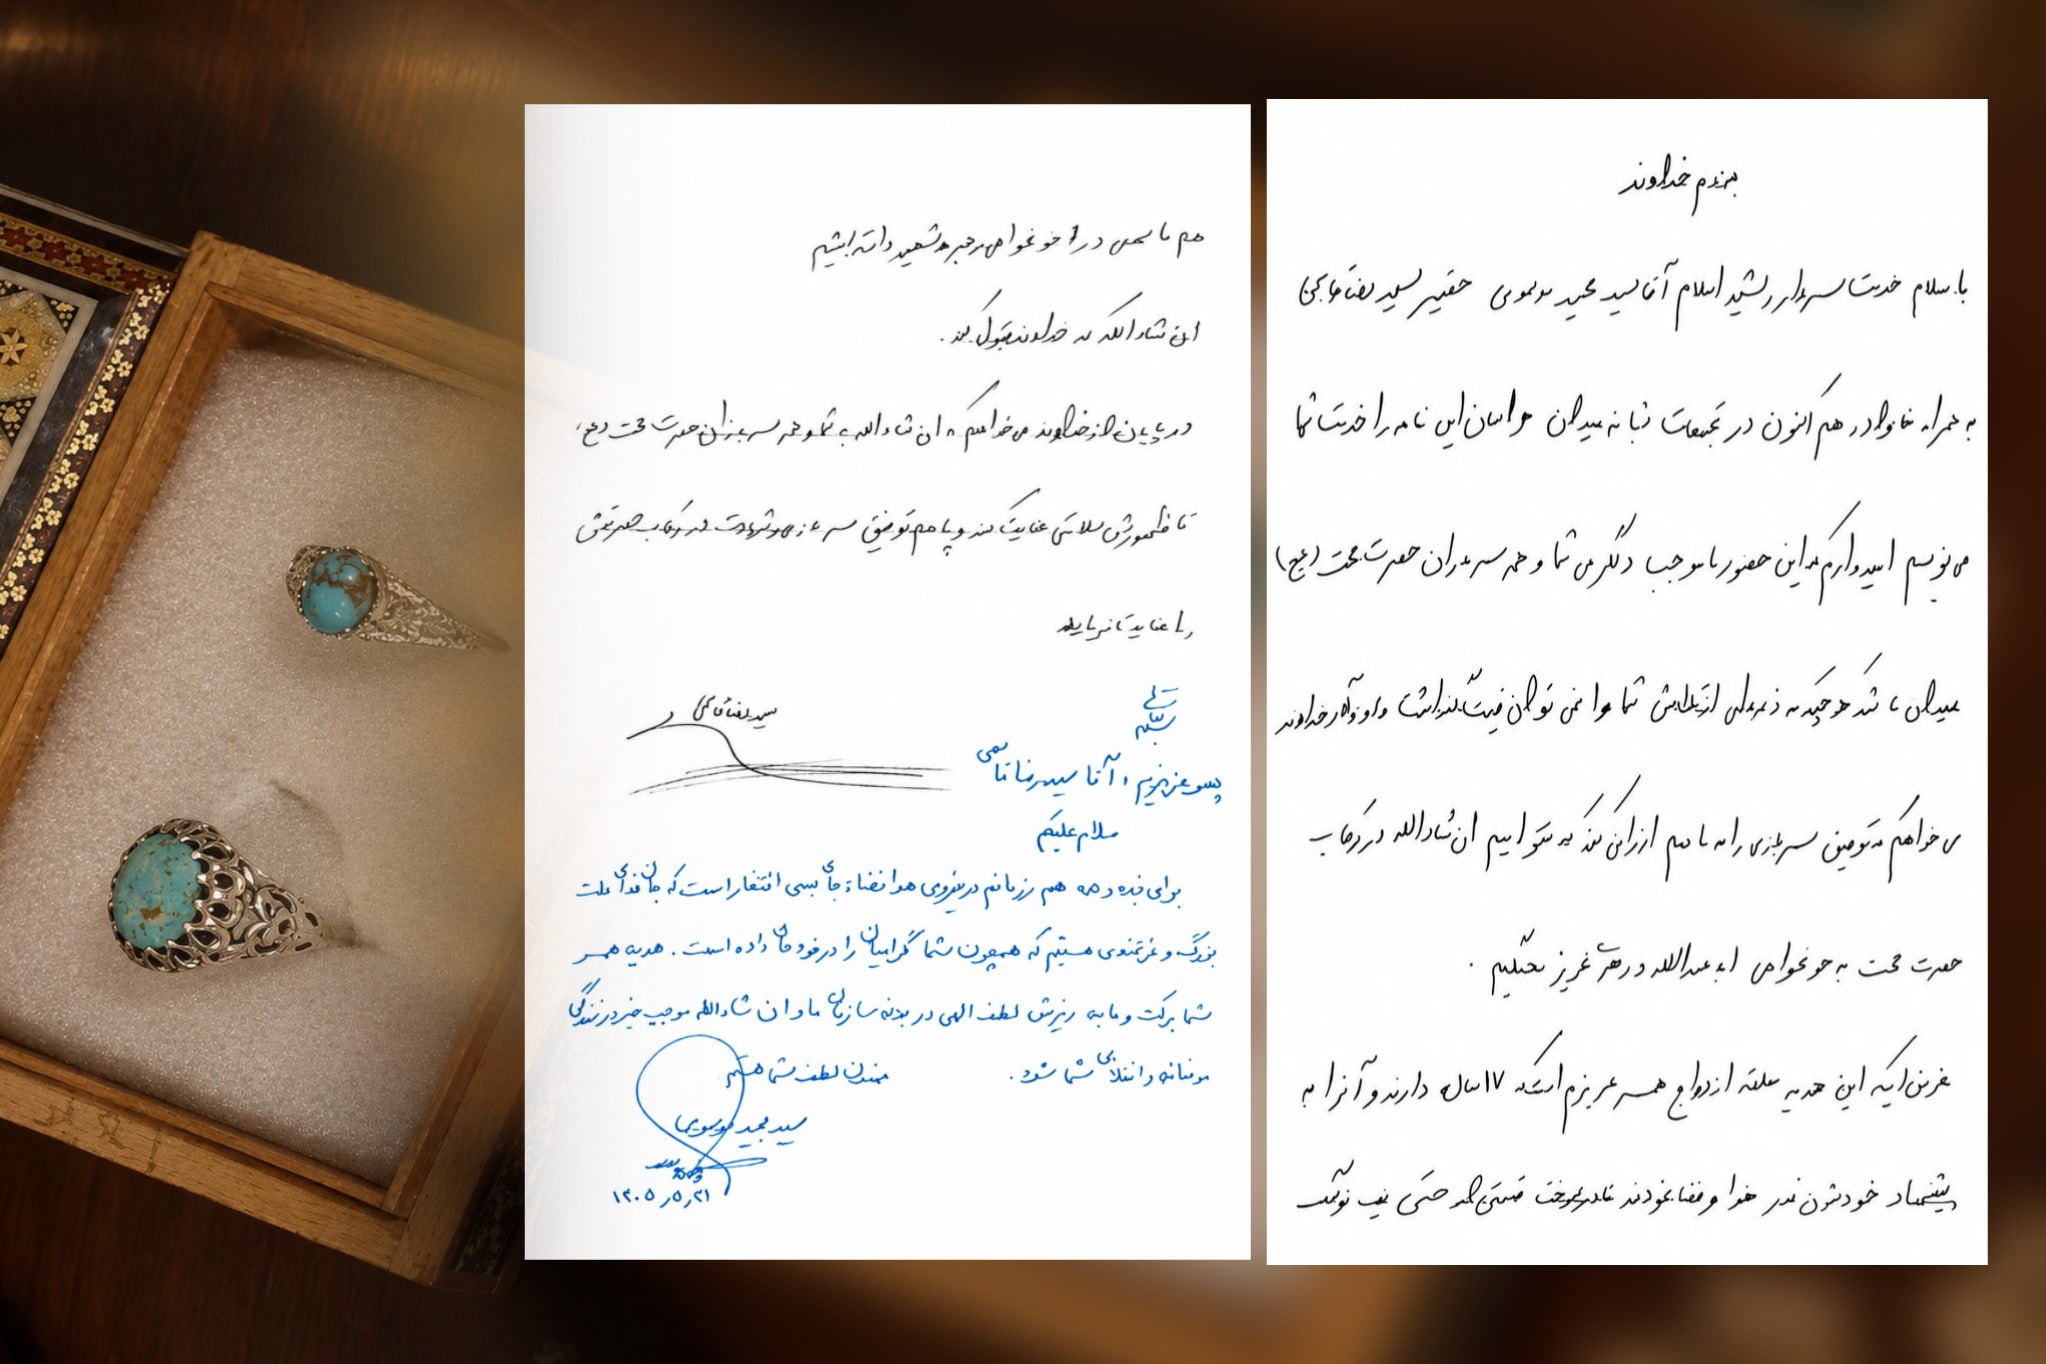 بنام خداوند
با سلام خدمت سردار رشید اسلام آقا سید مجید موسوی حقیر سید رضا قاسمی
به همراه خانواده هم اکنون در تجمعات شبانه میدان این نامه را خدمت شما
می نویسم امیدوارم که این حضور ما موجب دلگرمی شما و همه سربازان حضرت حجت (عج)
میدان باشد هر چند که ذره ای از شما را نمی توان و از خداوند
می خواهم که توفیق سربازی را به ما هم ارزانی کند که بتوانیم ان شاءالله در رکاب
حضرت حجت به خونخواهی ابا عبدالله و رهبر عزیز .
غرض اینکه این هدیه حلقه ازدواج همسر عزیزم است که ۱۷ سال دارند و آنرا به
پیشنهاد خودشون نذر هوا و فضا نمودند تا در حتی یک
هم ما سهمی در خونخواهی رهبر شهید داشته باشیم
ان شاءالله که خداوند قبول کند .
در پایان از خداوند می خواهم که ان شاءالله به شما و همه سربازان حضرت حجت (عج)
تا ظهورش سلامتی عنایت کند و به ما هم توفیق سربازی و شهادت در رکاب حضرتش
را عنایت فرماید
سید رضا قاسمی
پسر عزیزم ، آقا سید رضا قاسمی
سلام علیکم
برای بنده و همه هم رزمانم در نیروی هوافضا جای بسی افتخار است که جان فدای ملت
بزرگ و غیرتمندی هستیم که همچون شما گرامیان را در خود جای داده است . هدیه همسر
شما برکت و مایه ریزش لطف الهی در بدنه سازمان ما و ان شاءالله موجب خیر در زندگی
مومنانه و انقلابی شما شود . ممنون لطف شما هستم
سید مجید موسوی
۱۴۰۵٫۵٫۲۱